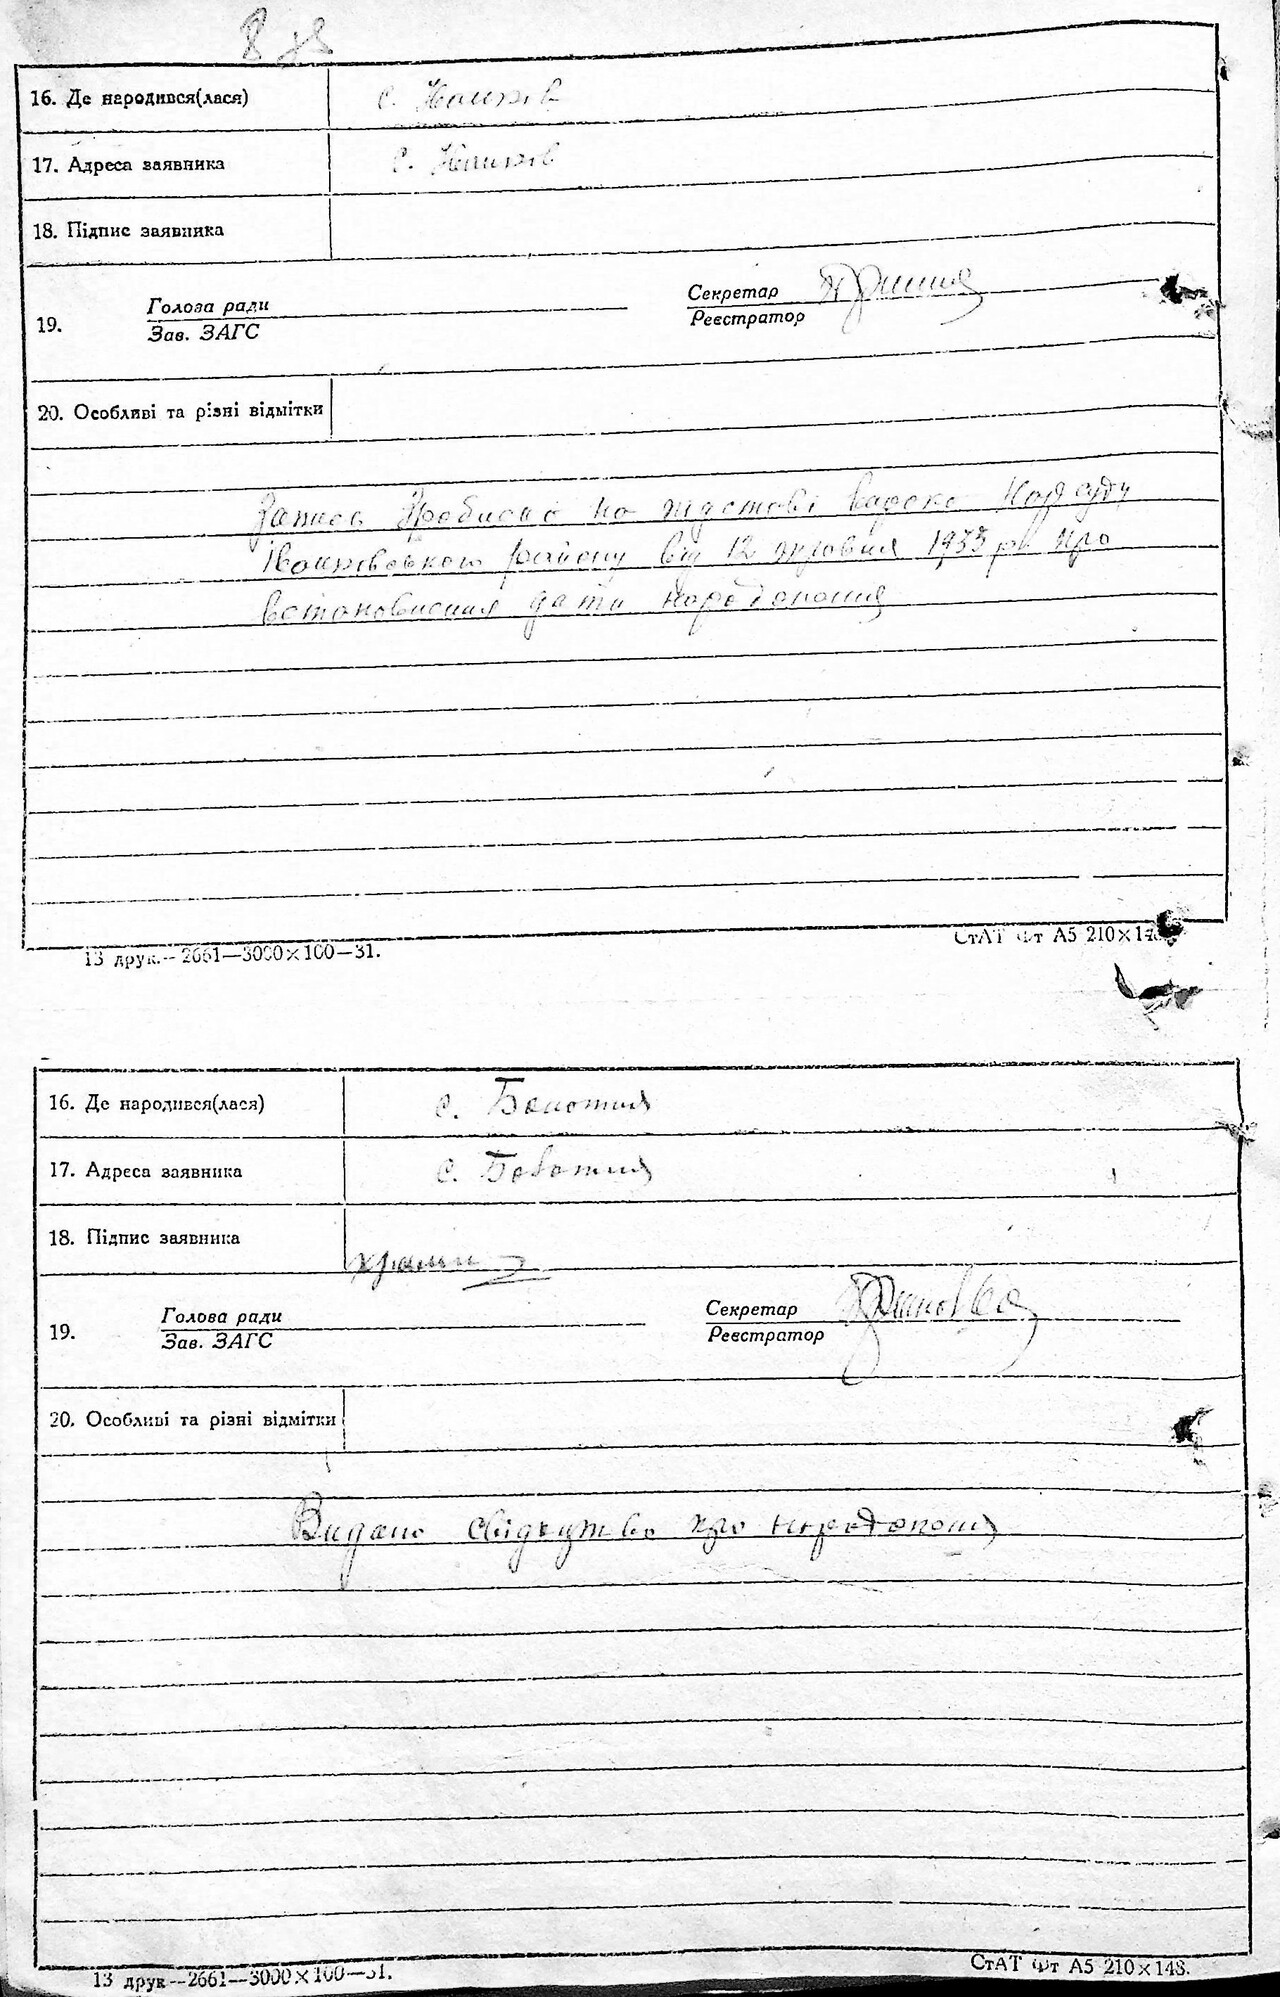 16. Де народився(лася) с.
17. Адреса заявника с.
18. Підпис заявника
Голова ради
Секретар
19.
Зав. ЗАГС
Реєстратор
20. Особливі та різні відмітки
Запись зроблено на підставі Нарсуду
району від 12 жовтня 1933 р. про
встановлення дати народження
13 друк.—2661—3000×100—31.
СтАТ Фт А5 210×148.
16. Де народився(лася) с. Болотня
17. Адреса заявника с. Болотня
18. Підпис заявника
Голова ради
Секретар
19.
Зав. ЗАГС
Реєстратор
20. Особливі та різні відмітки
Видано свідоцтво про народження
13 друк—2661—3000×100—31.
СтАТ Фт А5 210×148.